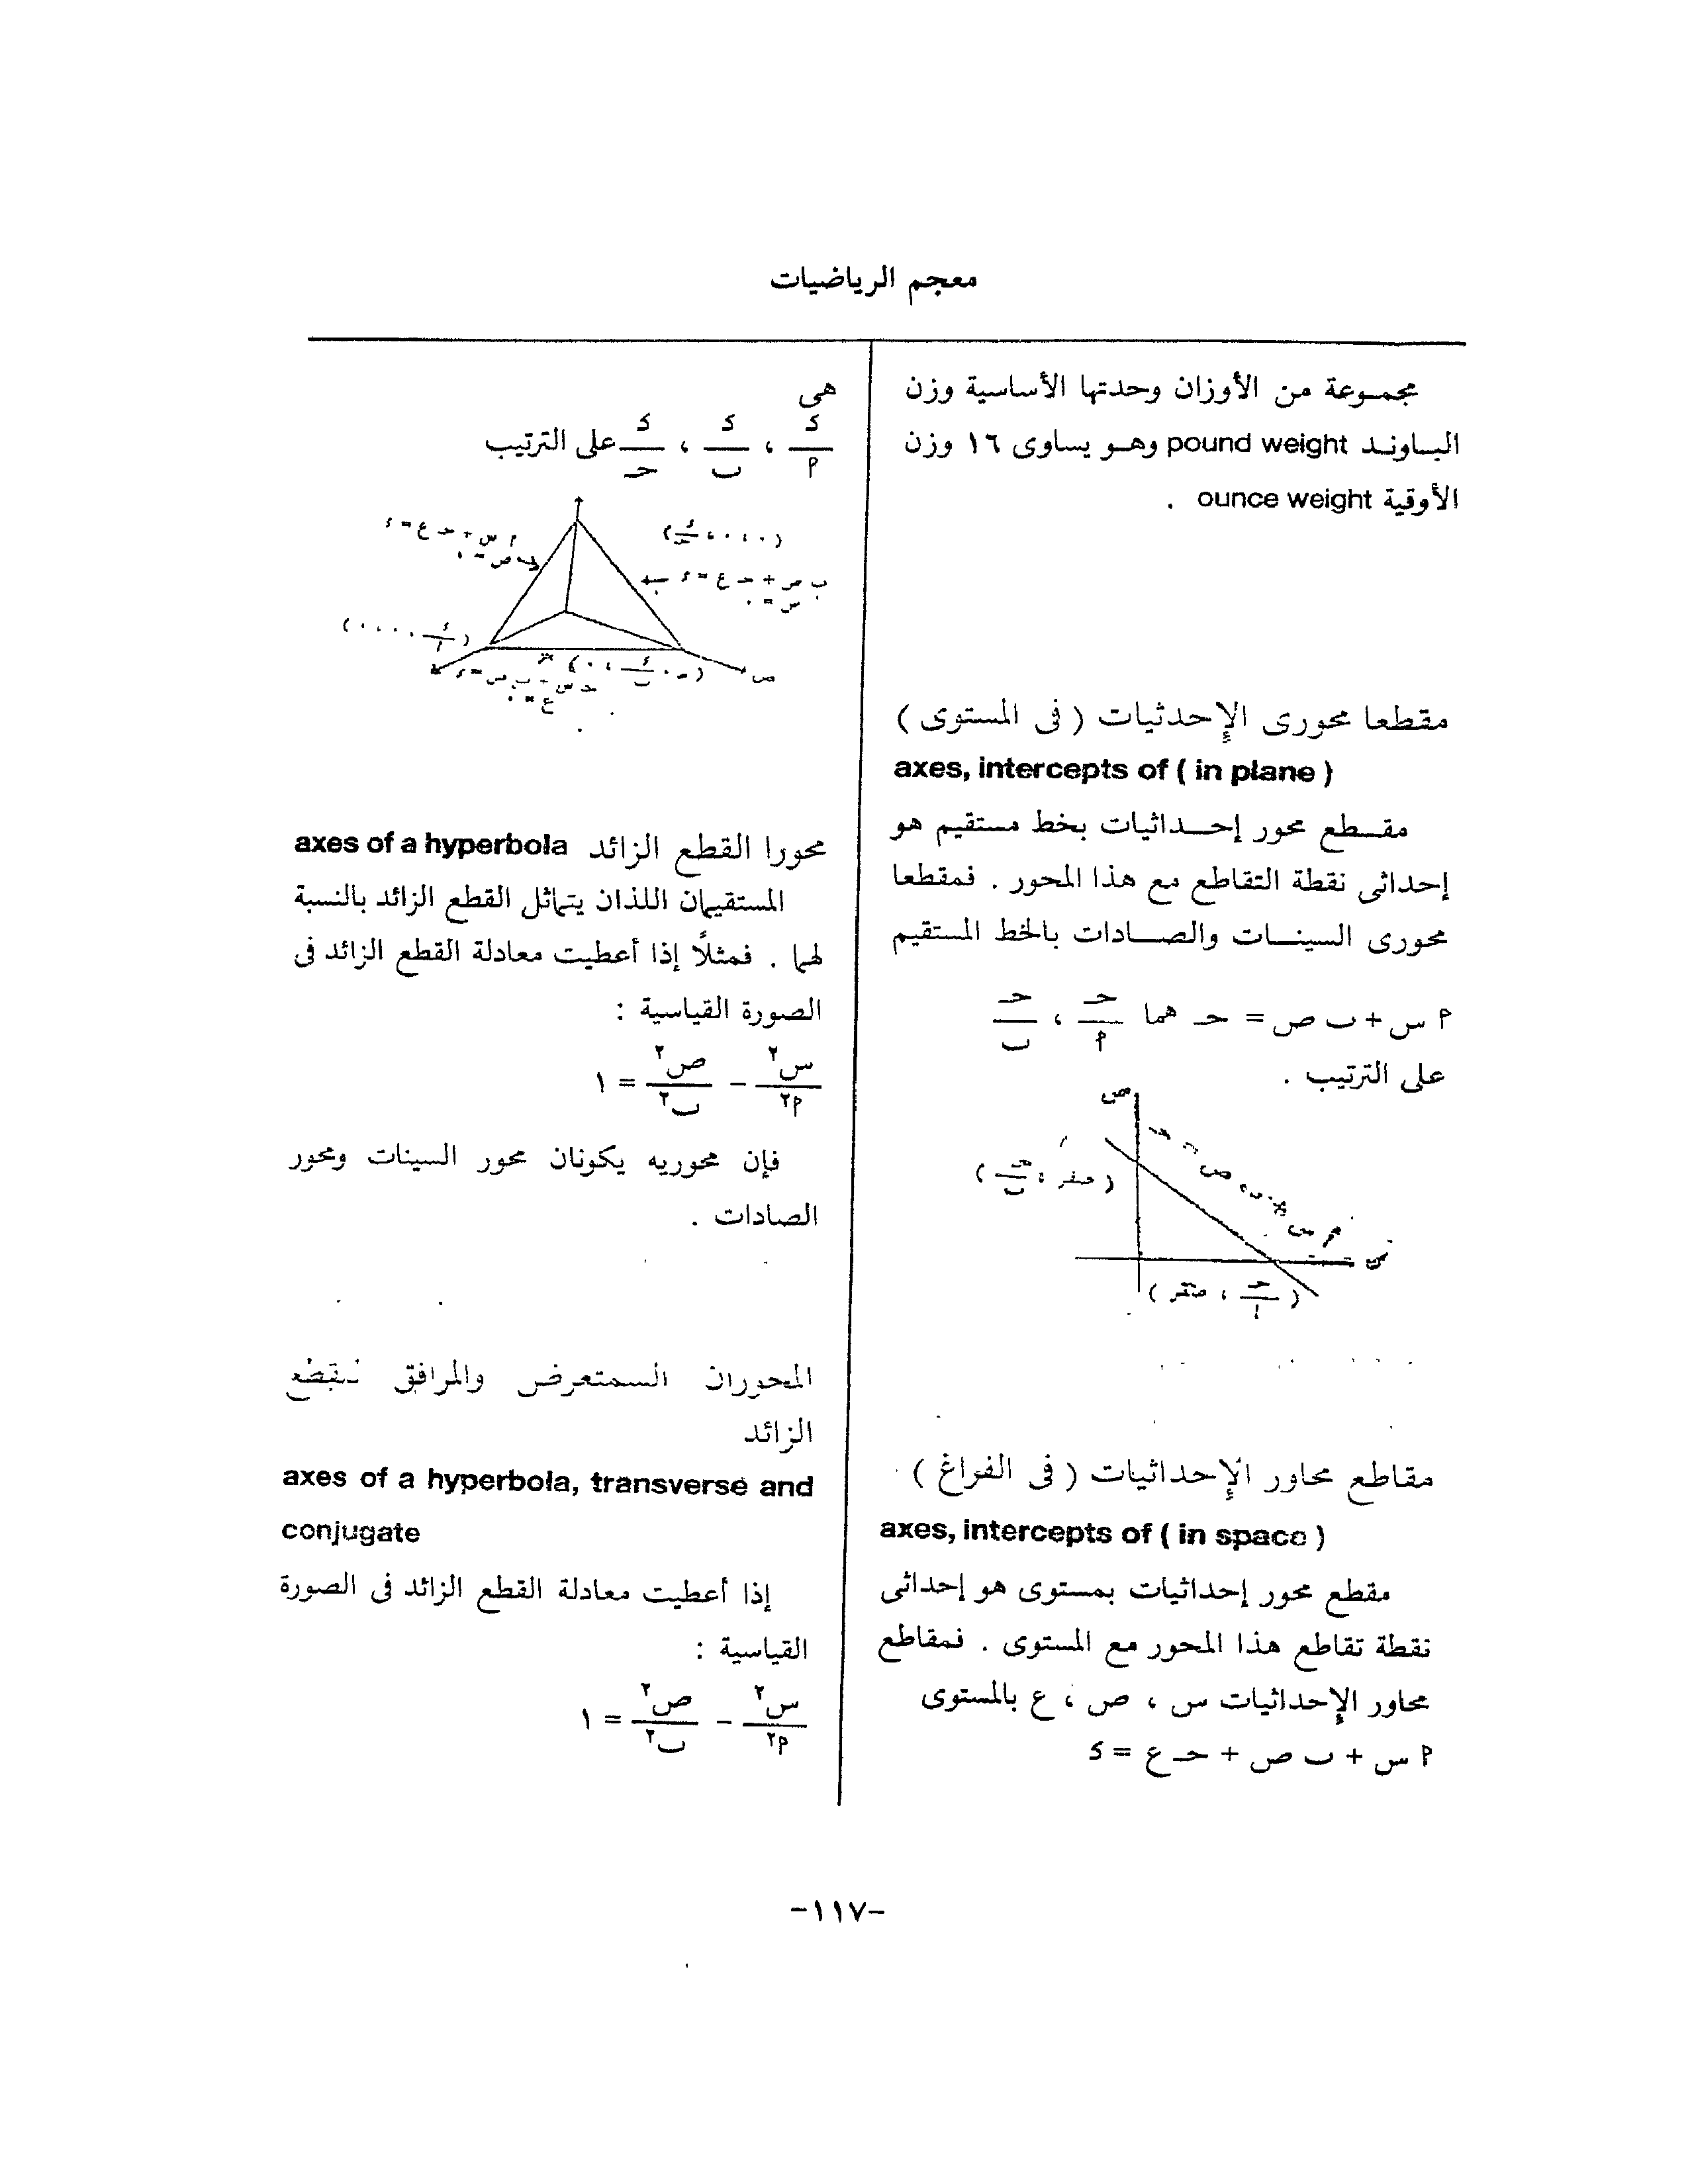 معجم الرياضيات
مجموعة من الأوزان وحدتها الأساسية وزن
الباوند pound weight وهو يساوى ١٦ وزن
الأوقية ounce weight .
مقطعا محورى الإحدثيات ( فى المستوى )
axes, intercepts of ( in plane )
مقطع محور إحداثيات بخط مستقيم هو
إحداثى نقطة التقاطع مع هذا المحور . فمقطعا
محورى السينات والصادات بالخط المستقيم
م س + ب ص = حـ هما حـ/م ، حـ/ب
على الترتيب .
ص
( صفر ، حـ/ب )
س
( حـ/ا ، صفر )
مقاطع محاور الإحداثيات ( فى الفراغ )
axes, intercepts of ( in space )
مقطع محور إحداثيات بمستوى هو إحداثى
نقطة تقاطع هذا المحور مع المستوى . فمقاطع
محاور الإحداثيات س ، ص ، ع بالمستوى
م س + ب ص + حـ ع = د
هى
د/م ، د/ب ، د/حـ على الترتيب
م س + حـ ع = د
ص = ٠
ب ص + حـ ع = د
س = ٠
ص
ع = ٠
محورا القطع الزائد axes of a hyperbola
المستقيمان اللذان يتماثل القطع الزائد بالنسبة
لهما . فمثلًا إذا أعطيت معادلة القطع الزائد فى
الصورة القياسية :
س٢/م٢ − ص٢/ب٢ = ١
فإن محوريه يكونان محور السينات ومحور
الصادات .
المحوران المستعرض والمرافق للقطع
الزائد
axes of a hyperbola, transverse and
conjugate
إذا أعطيت معادلة القطع الزائد فى الصورة
القياسية :
س٢/م٢ − ص٢/ب٢ = ١
-١١٧-